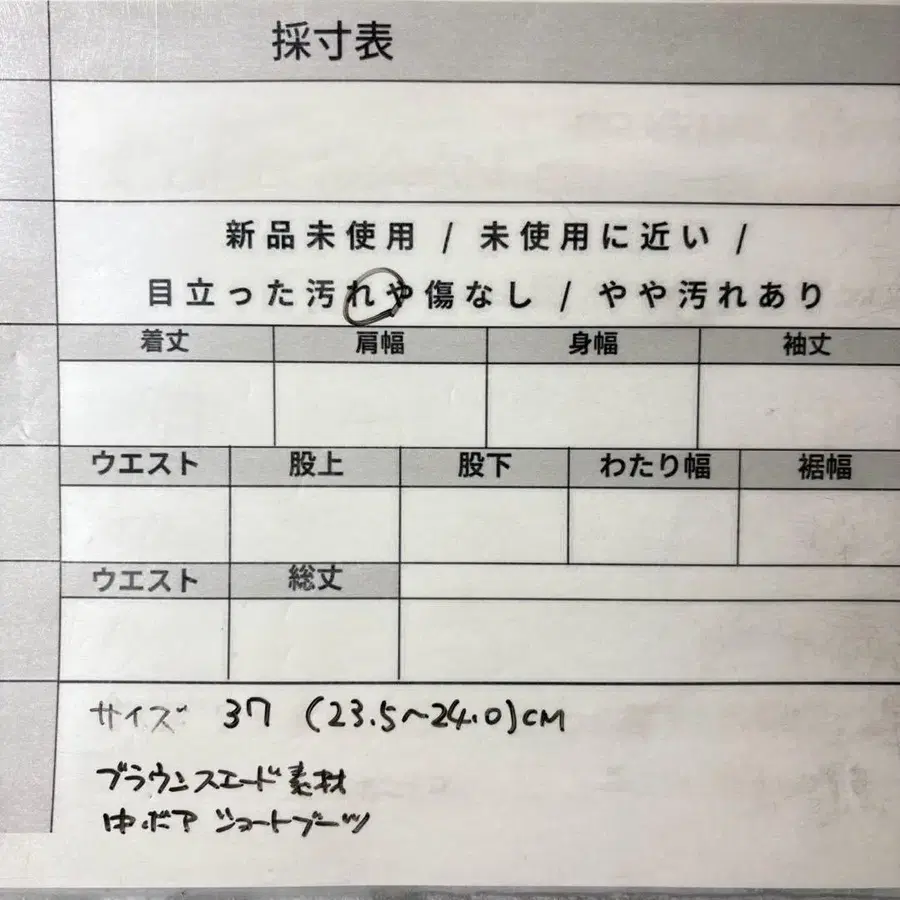 採寸表
新品未使用 / 未使用に近い /
目立った汚れや傷なし / やや汚れあり
着丈 肩幅 身幅 袖丈
ウエスト 股上 股下 わたり幅 裾幅
ウエスト 総丈
サイズ 37 (23.5〜24.0)CM
ブラウンスエード素材
中ボア ショートブーツ